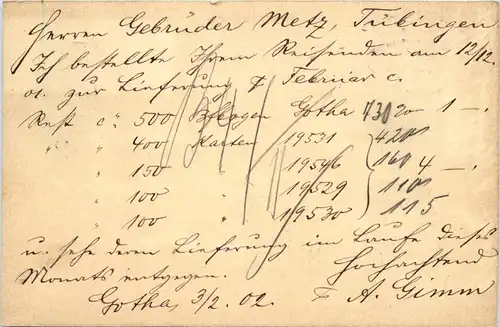 Herren Gebrüder Metz, Tübingen
Ich bestellte Ihrem Reisenden am 12/12.
01. zur Lieferung Februar c.
Rest 500 Gotha 73020 1 —.
" " 400 Karten 19531 420
" 150 " 19546 160 4 —.
" 100 " 19529 110
" 100 " 19530 115
u. sehe deren Lieferung im Laufe dieses
Monats entgegen. Hochachtend
Gotha, 3/2. 02. A. Gimm